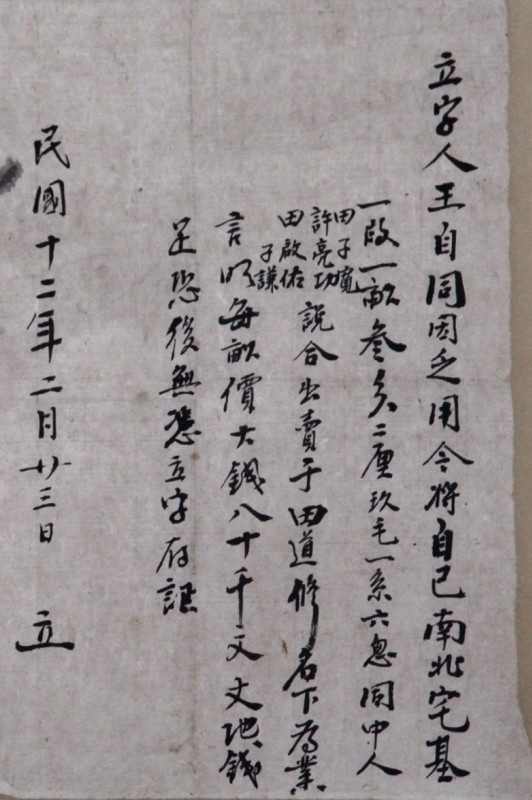 立字人王自同因乏用今将自己南北宅基
一段一畝叁分二厘玖毛一系六忽同中人
田子寬
許亮功
田啟佑
子謙
說合出賣于田道修名下為業
言明每畝價大錢八十千文丈地錢
足恐後無憑立字存証
民國十二年二月廿三日 立